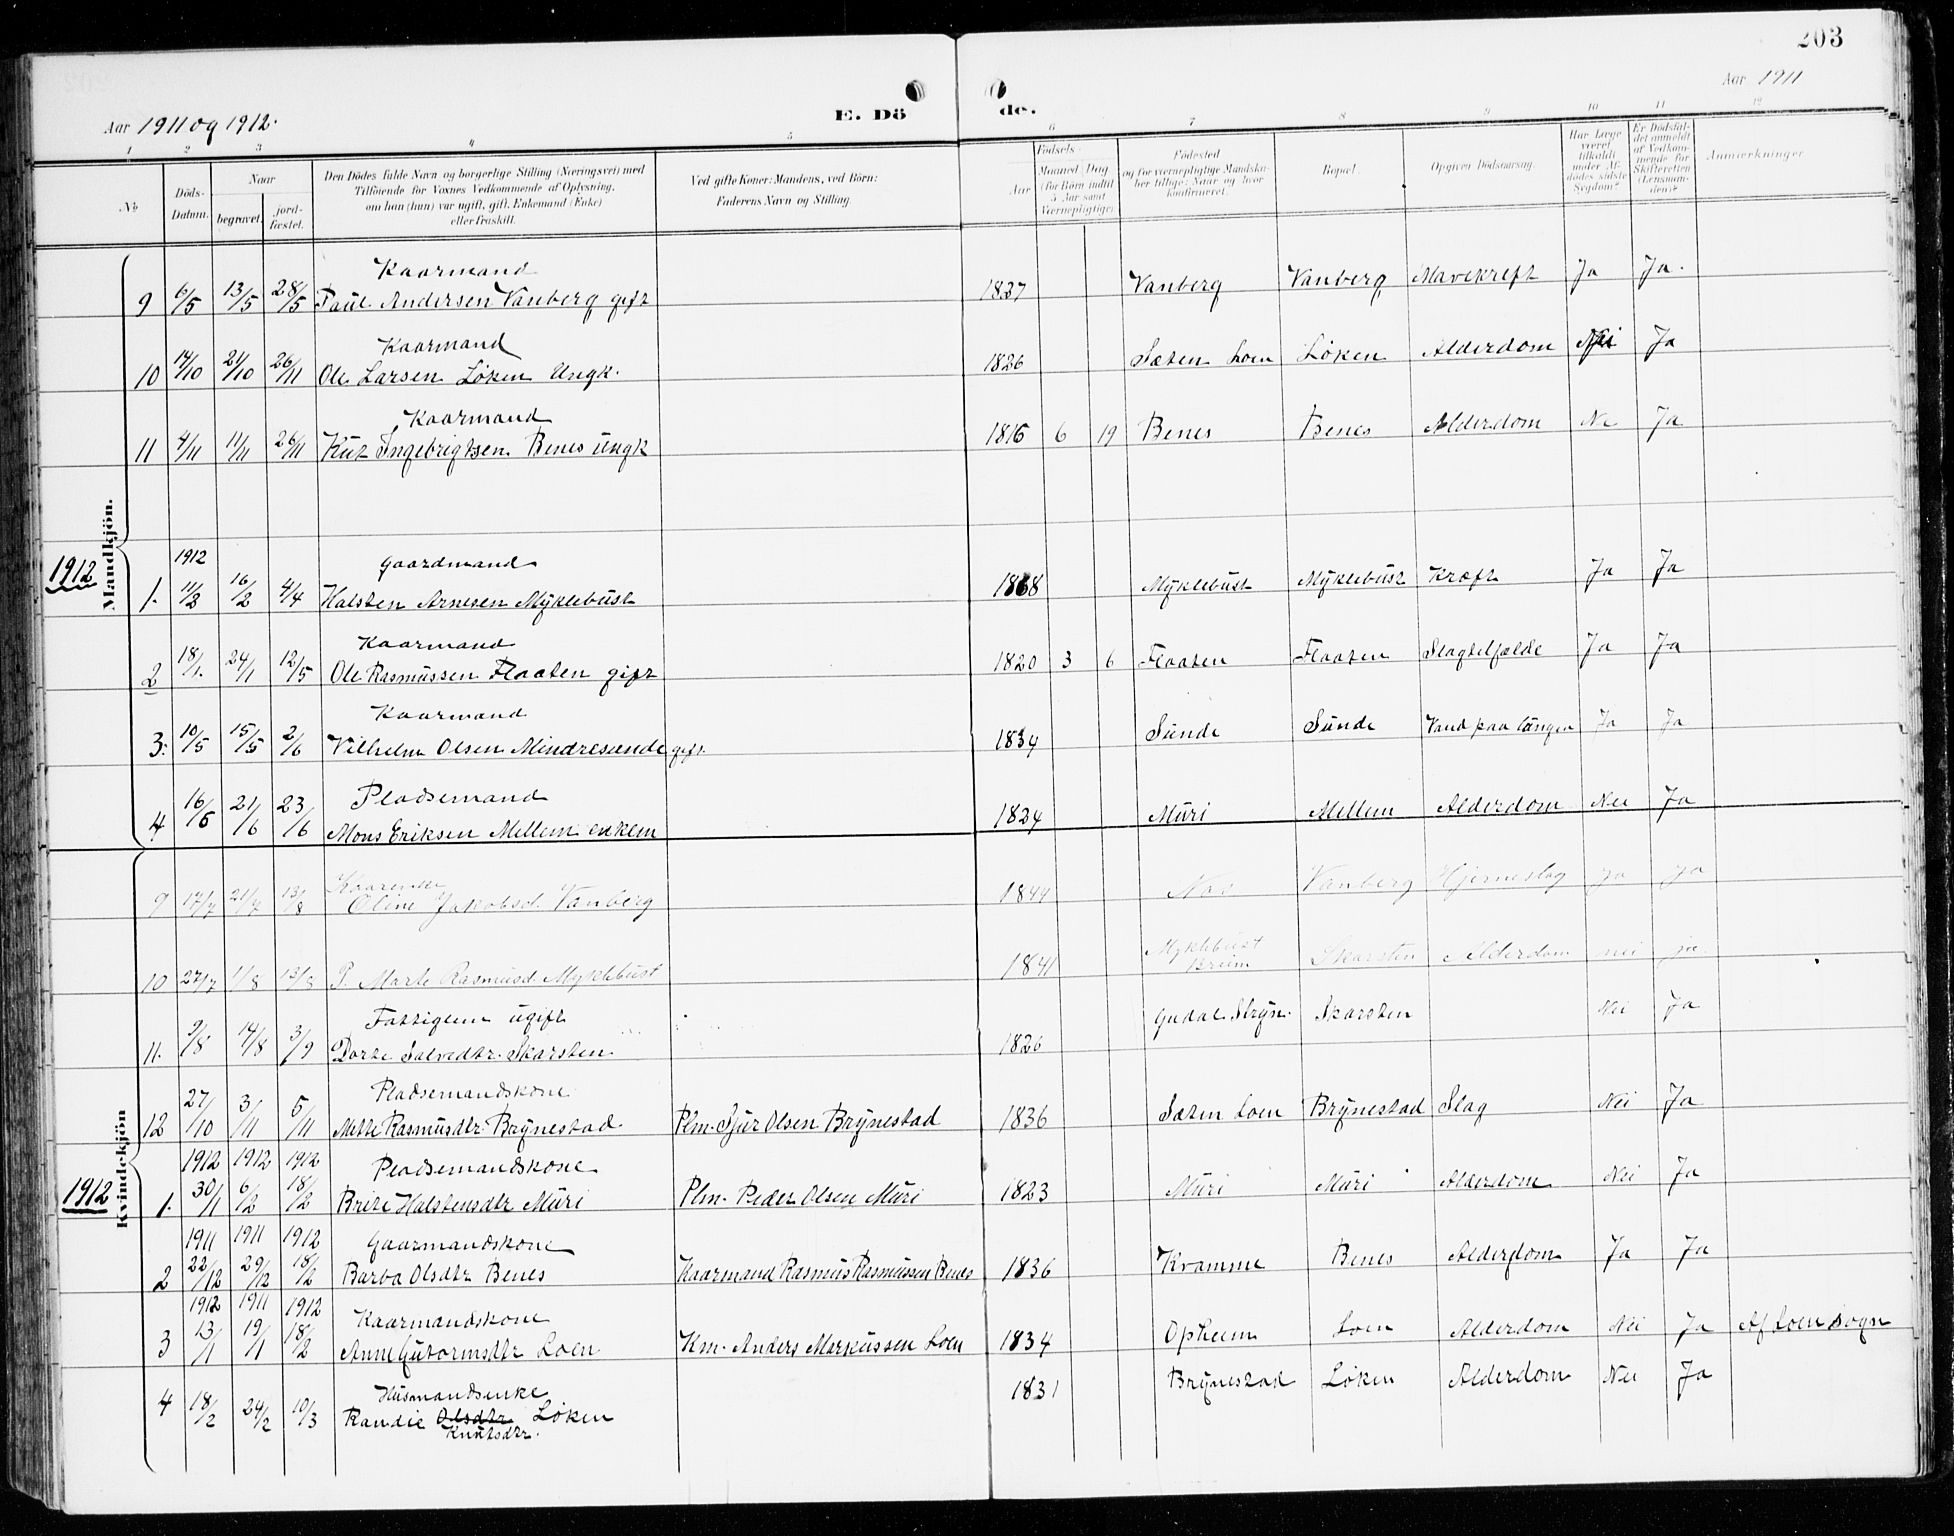 203
Aar 1911 og 1912.
E. Dö
de.
Aar 1911
1 2 3 4 5 6 7 8 9 10 11 12
No
Döds-Datum.
Naar
begravet.
jord-fæstet.
Den Dödes fulde Navn og borgerlige Stilling (Næringsvei) med
Tilföiende for Voxnes Vedkommende af Oplysning,
om han (hun) var ugift, gift, Enkemand (Enke)
eller fraskilt.
Ved gifte Koner: Mandens, ved Börn:
Faderens Navn og Stilling.
Födsels-
Aar
Maaned Dag
(for Börn indtil
5 Aar samt
Værnepligtige)
Födested
og for værnepligtige Mandska-
ber tillige: Naar og hvor
konfirmeret.
Bopæl.
Opgiven Dödsaarsag.
Har Læge
været
tilkaldt
under Af-
dödes sidste
Sygdom?
Er Dödsfal-
det anmeldt
af Vedkom-
mende for
Skifteretten
(Lensman-
den)?
Anmærkninger
Mandkjön.
Kaarmand
9 6/5 13/5 28/5 Paul Andersen Vanberg gift 1837 Vanberg Vanberg Mavekreft Ja Ja.
Kaarmand
10 14/10 21/10 26/11 Ole Larsen Løken Ungk. 1826 Sæten Loen Løken Alderdom Nei Ja
Kaarmand
11 4/11 11/11 26/11 Kut Ingebrigtsen Benes ungk 1816 6 19 Benes Benes Alderdom Ne Ja
1912
1912
Gaardmand
1. 11/2 16/2 4/4 Halsten Arnesen Myklebust 1868 Myklebust Myklebust Kræft Ja Ja
Kaarmand
2 18/1. 24/1 12/5 Ole Rasmussen Flaaten gift 1820 3 6 Flaaten Flaaten Slagtilfælde Ja Ja
Kaarmand
3. 10/5 15/5 2/6 Vilhelm Olsen Mindresunde gift. 1834 Sunde Sunde Vand paa lungen Ja Ja
Pladsemand
4 16/6 21/6 23/6 Mons Eriksen Mellem enkem 1824 Muri Mellem Alderdom Nei Ja
Kvindekjön
Kaarenke
9 17/7 21/7 13/8 Oline Jakobsd. Vanberg 1844 Nos Vanberg Hjerneslag Ja Ja
10 27/7 1/8 13/8 P. Marte Rasmusd. Myklebust 1841 Myklebust Briem Skarsten Alderdom nei ja
Fattiglem ugift
11. 9/8 14/8 3/9 Dorte Salvedtr. Skarsten 1826 Gudal Stryn. Skarsten Nei Ja
Pladsemandskone
12 27/10 3/11 5/11 Mette Rasmusdtr. Brynestad Plm. Sjur Olsen Brynestad 1836 Sæten Loen Brynestad Slag Nei Ja
1912
1912 1912 1912 Pladsemandskone
1. 30/1 6/2 18/2 Brite Halstensdtr Muri Plm. Peder Olsen Muri 1823 Muri Muri Alderdom Nei Ja
1911 1911 1912 Gaarmandskone
2 22/12 29/12 18/2 Barba Olsdtr Benes Kaarmand Rasmus Rasmussen Benes 1836 Kvamme Benes Alderdom Ja Ja
1912 1911 1912 Kaarmandskone
3 13/1 19/1 18/2 Anne Gutormsdtr Loen Km. Anders Markussen Loen 1834 Opheim Loen Alderdom Nei Ja Af Loen sogn
Husmandsenke
4 18/2 24/2 10/3 Randie Olsdtr Løken 1831 Brynestad Løken Alderdom Nei Ja
Knutsdtr.